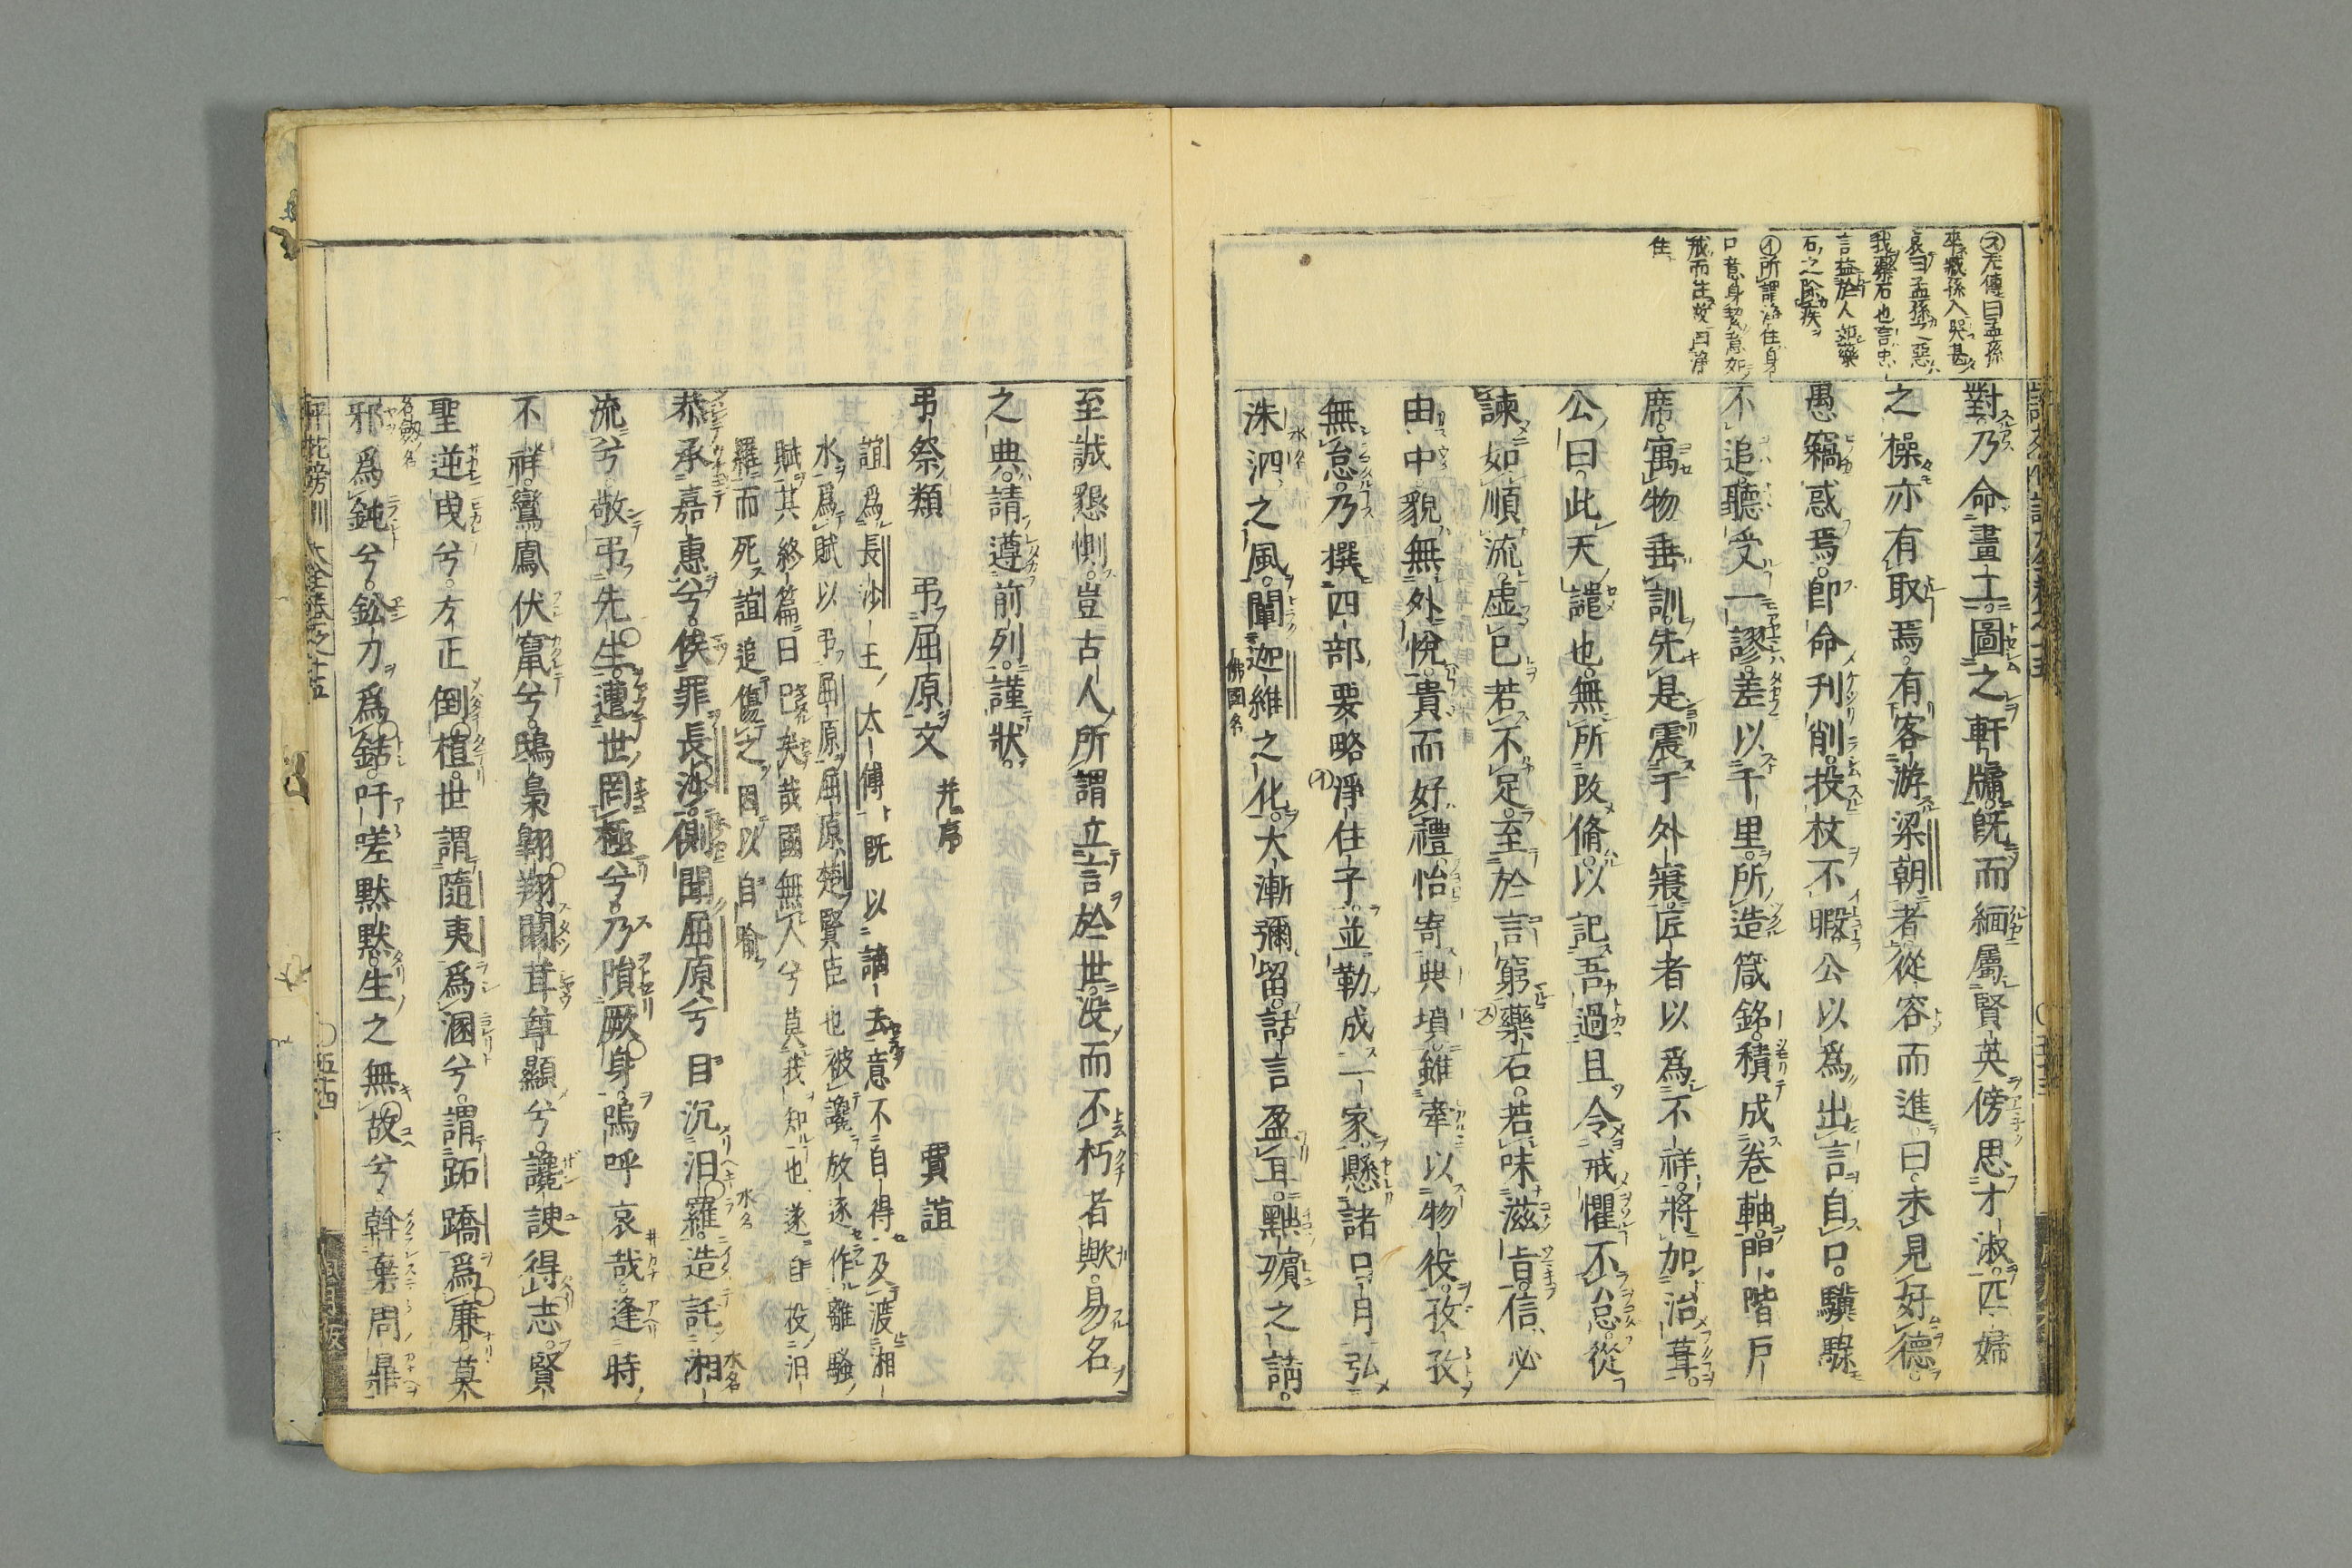 對乃命畫工圖之軒牖既而緬屬賢英傍思才淑匹婦
之操亦有取焉有客游梁朝者從容而進曰未見好德
愚竊惑焉卽命刊削投杖不暇公以爲出言自口驥騄
不追聽受一謬差以千里所造箴銘積成卷軸門階戶
席寓物垂訓先是震于外寢匠者以爲不祥將加治葺
公曰此天譴也無所改脩以記吾過且令戒懼不怠從
諫如順流虛己若不足至於言窮藥石若味滋旨信必
由中貌無外悅貴而好禮怡寄典墳雖牽以物役孜孜
無怠乃撰四部要略淨住子並勒成一家懸諸日月弘
洙泗之風闡迦維之化大漸彌留話言盈耳黜殯之請
水名
佛國名
左傳曰孟孫
卒臧孫入哭甚
哀曰孟孫之惡
我藥石也言忠
言益於人如藥
石之除疾
所謂淨住身
口意身㓗意如
戒而住故曰淨
住
至誠懇惻豈古人所謂立言於世没而不朽者歟易名
之典請遵前列謹狀
弔祭類
弔屈原文 并序 賈誼
誼爲長沙王太傅既以謫去意不自得及渡湘
水爲賦以弔屈原屈原楚賢臣也被讒放逐作離騷
賦其終篇曰已矣哉國無人兮莫我知也遂自投汨
羅而死誼追傷之因以自喻
恭承嘉惠兮俟罪長沙側聞屈原兮自沉汨羅造託湘
水名
水名
流兮敬弔先生遭世罔極兮乃隕厥身嗚呼哀哉逢時
不祥鸞鳳伏竄兮鴟梟翺翔闒茸尊顯兮讒諛得志賢
聖逆曳兮方正倒植世謂隨夷爲溷兮謂跖蹻爲廉莫
名劔名
邪爲鈍兮鈆刀爲銛吁嗟默默生之無故兮斡棄周鼎
五十四